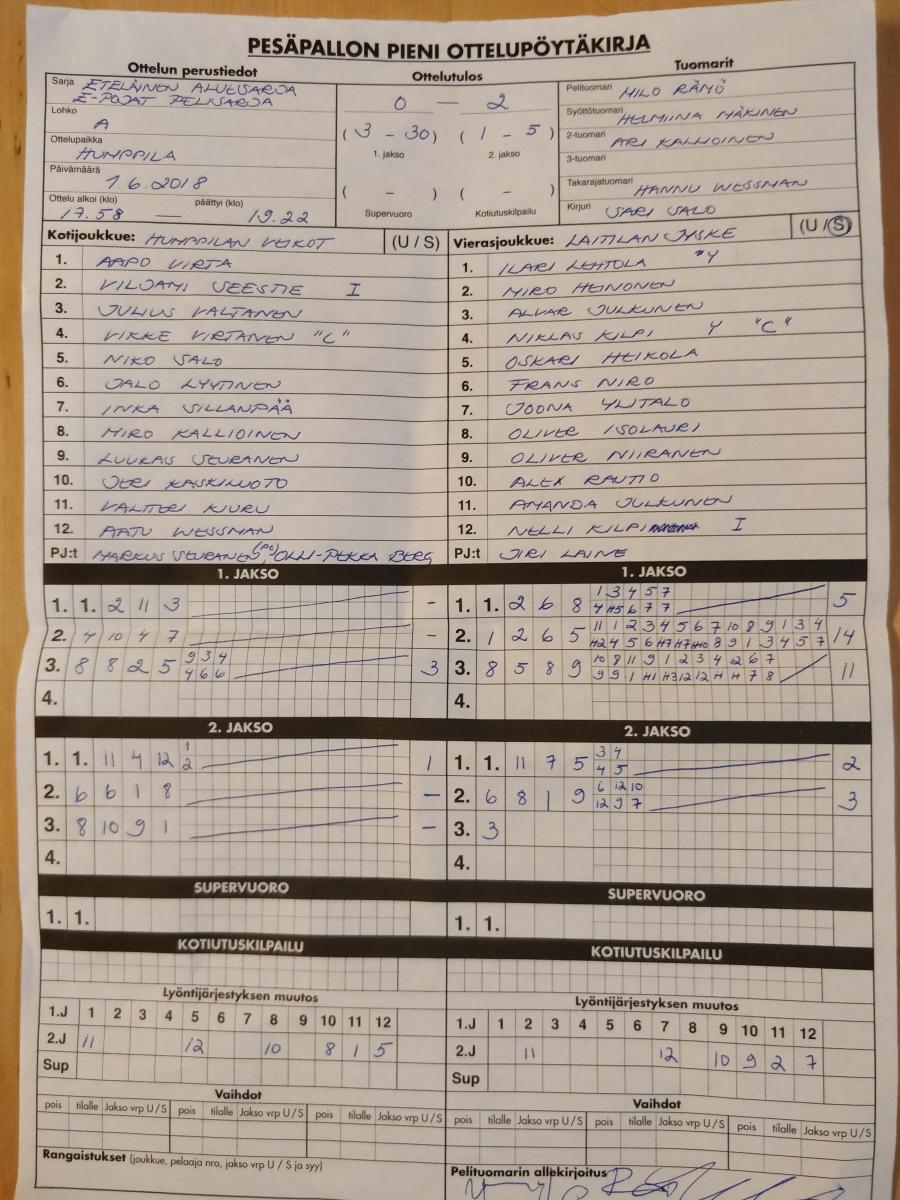 PESÄPALLON PIENI OTTELUPÖYTÄKIRJA
Ottelun perustiedot
Sarja ETELÄINEN ALUESARJA
E-POJAT PELISARJA
Lohko A
Ottelupaikka HUMPPILA
Päivämäärä 1.6.2018
Ottelu alkoi (klo) päättyi (klo)
17.58 — 19.22
Ottelutulos
0 — 2
(3 - 30) (1 - 5)
1. jakso 2. jakso
( - ) ( - )
Supervuoro Kotiutuskilpailu
Tuomarit
Pelituomari MILO RÄMÖ
Syöttötuomari HELMIINA MÄKINEN
2-tuomari ARI KALLIOINEN
3-tuomari
Takarajatuomari HANNU WESSMAN
Kirjuri SARI SALO
Kotijoukkue: HUMPPILAN VEIKOT (U / S)
1. AAPO VIRTA
2. VILJAMI SEESTIE I
3. JULIUS VALTANEN
4. VIKKE VIRTANEN "C"
5. NIKO SALO
6. JALO LYYTINEN
7. INKA SILLANPÄÄ
8. MIRO KALLIOINEN
9. LUUKAS SEURANEN
10. JERI KASKILUOTO
11. VALTTERI KIURU
12. AATU WESSMAN
PJ:t MARKUS SEURANEN (PJ) OLLI-PEKKA BERG
Vierasjoukkue: LAITILAN JYSKE (U / S)
1. ILARI LEHTOLA
2. MIRO HEINONEN
3. ALVAR JULKUNEN
4. NIKLAS KILPI Y "C"
5. OSKARI HEIKOLA
6. FRANS NIRO
7. JOONA YLITALO
8. OLIVER ISOLAURI
9. OLIVER NIIRANEN
10. ALEX RAUTIO
11. AMANDA JULKUNEN
12. NELLI KILPI I
PJ:t JIRI LAINE
1. JAKSO
1. 1. 2 11 3 -
2. 4 10 4 7 -
3. 8 8 2 5 9 3 4
4 6 6 3
4.
1. JAKSO
1. 1. 2 6 8 1 3 4 5 7
4 H5 6 7 7 5
2. 1 2 6 5 11 1 2 3 4 5 6 7 10 8 9 1 3 4
14
3. 8 5 8 9 10 8 11 9 1 2 3 4 12 6 7
11
4.
2. JAKSO
1. 1. 11 4 12 1
2 1
2. 6 6 1 8 -
3. 8 10 9 1 -
4.
2. JAKSO
1. 1. 11 7 5 3 4
4 5 2
2. 6 8 1 9 6 12 10
12 9 7 3
3. 3
4.
SUPERVUORO
1. 1.
SUPERVUORO
1. 1.
KOTIUTUSKILPAILU
KOTIUTUSKILPAILU
Lyöntijärjestyksen muutos
1.J 1 2 3 4 5 6 7 8 9 10 11 12
2.J 11 12 10 8 1 5
Sup
Lyöntijärjestyksen muutos
1.J 1 2 3 4 5 6 7 8 9 10 11 12
2.J 11 12 10 9 2 7
Sup
Vaihdot
pois tilalle Jakso vrp U / S pois tilalle Jakso vrp U / S pois tilalle Jakso vrp U / S
Vaihdot
pois tilalle Jakso vrp U / S pois tilalle Jakso vrp U / S pois tilalle Jakso vrp U / S
Rangaistukset (joukkue, pelaaja nro, jakso vrp U / S ja syy)
Pelituomarin allekirjoitus